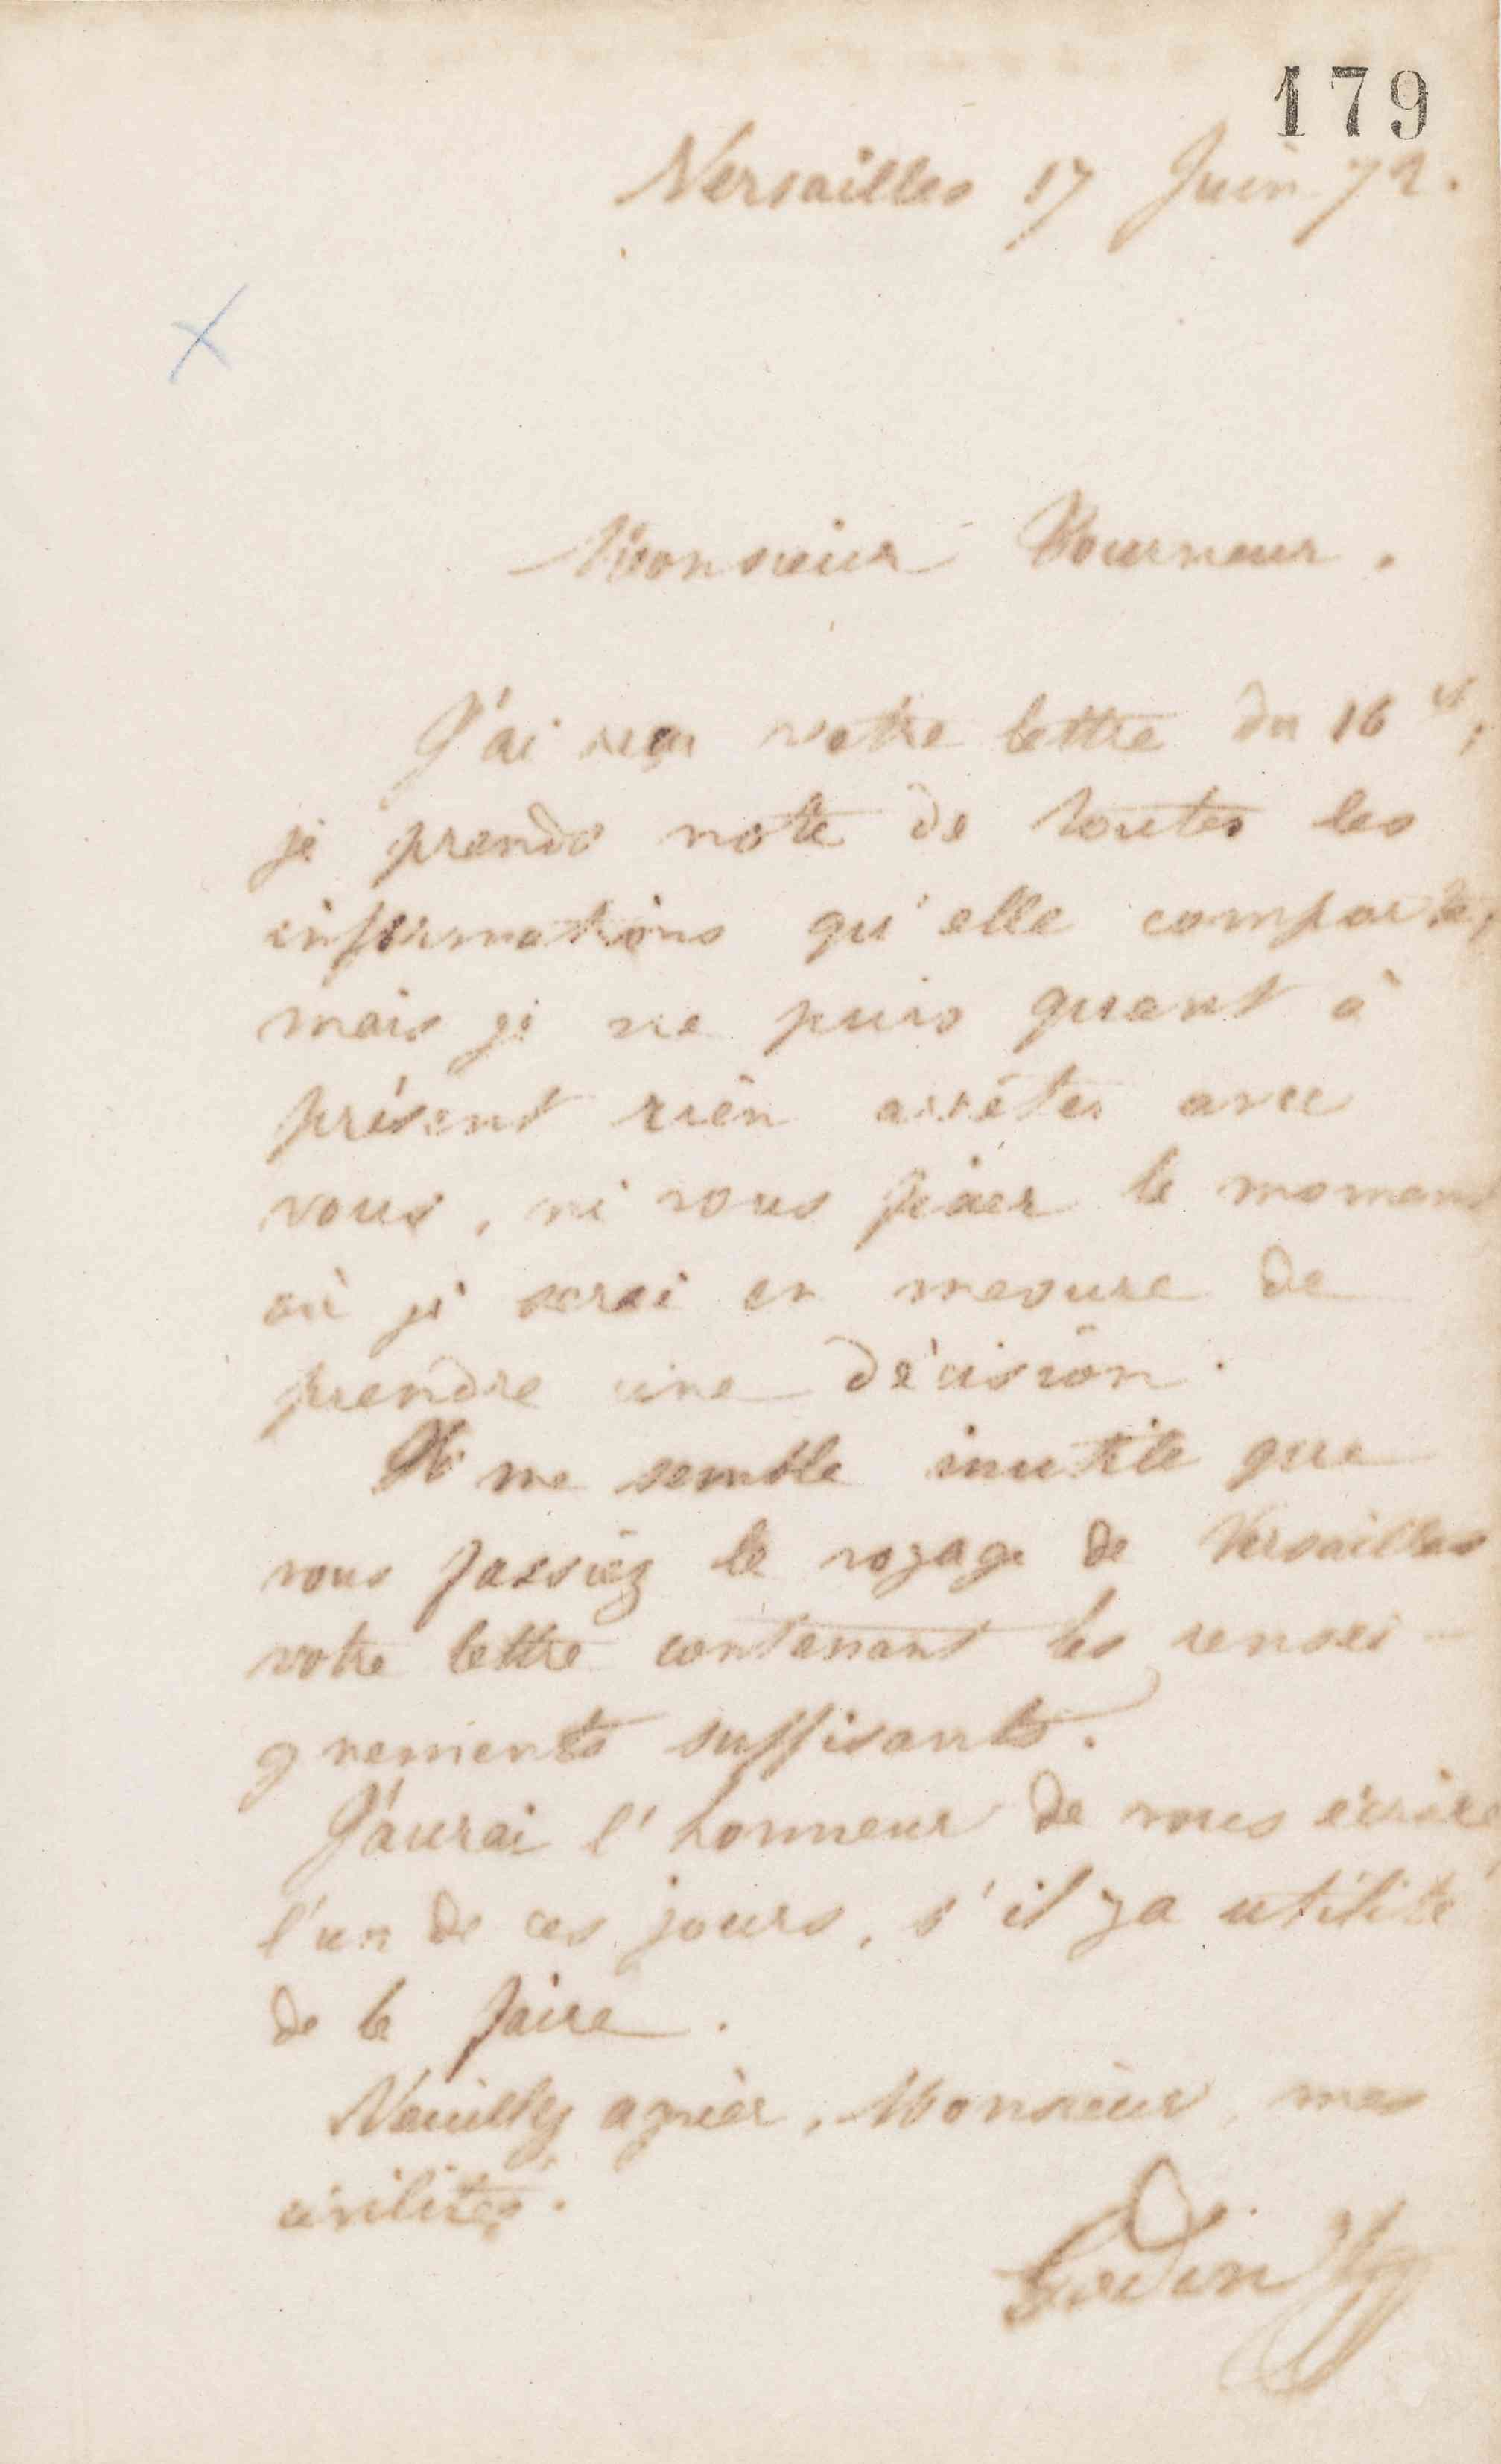 179
Versailles 17 Juin 72.
Monsieur Tourneur.
J'ai reçu votre lettre du 16 ct;
je prends note de toutes les
informations qu'elle comporte,
mais je ne puis quant à
présent rien arrêter avec
vous, ni vous fixer le moment
où je serai en mesure de
prendre une décision.
Il me semble inutile que
vous fassiez le voyage de Versailles
votre lettre contenant les rensei-
gnements suffisants.
J'aurai l'honneur de vous écrire
l'un de ces jours, s'il y a utilité
de le faire.
Veuillez agréer, Monsieur, mes
civilités.
Godin